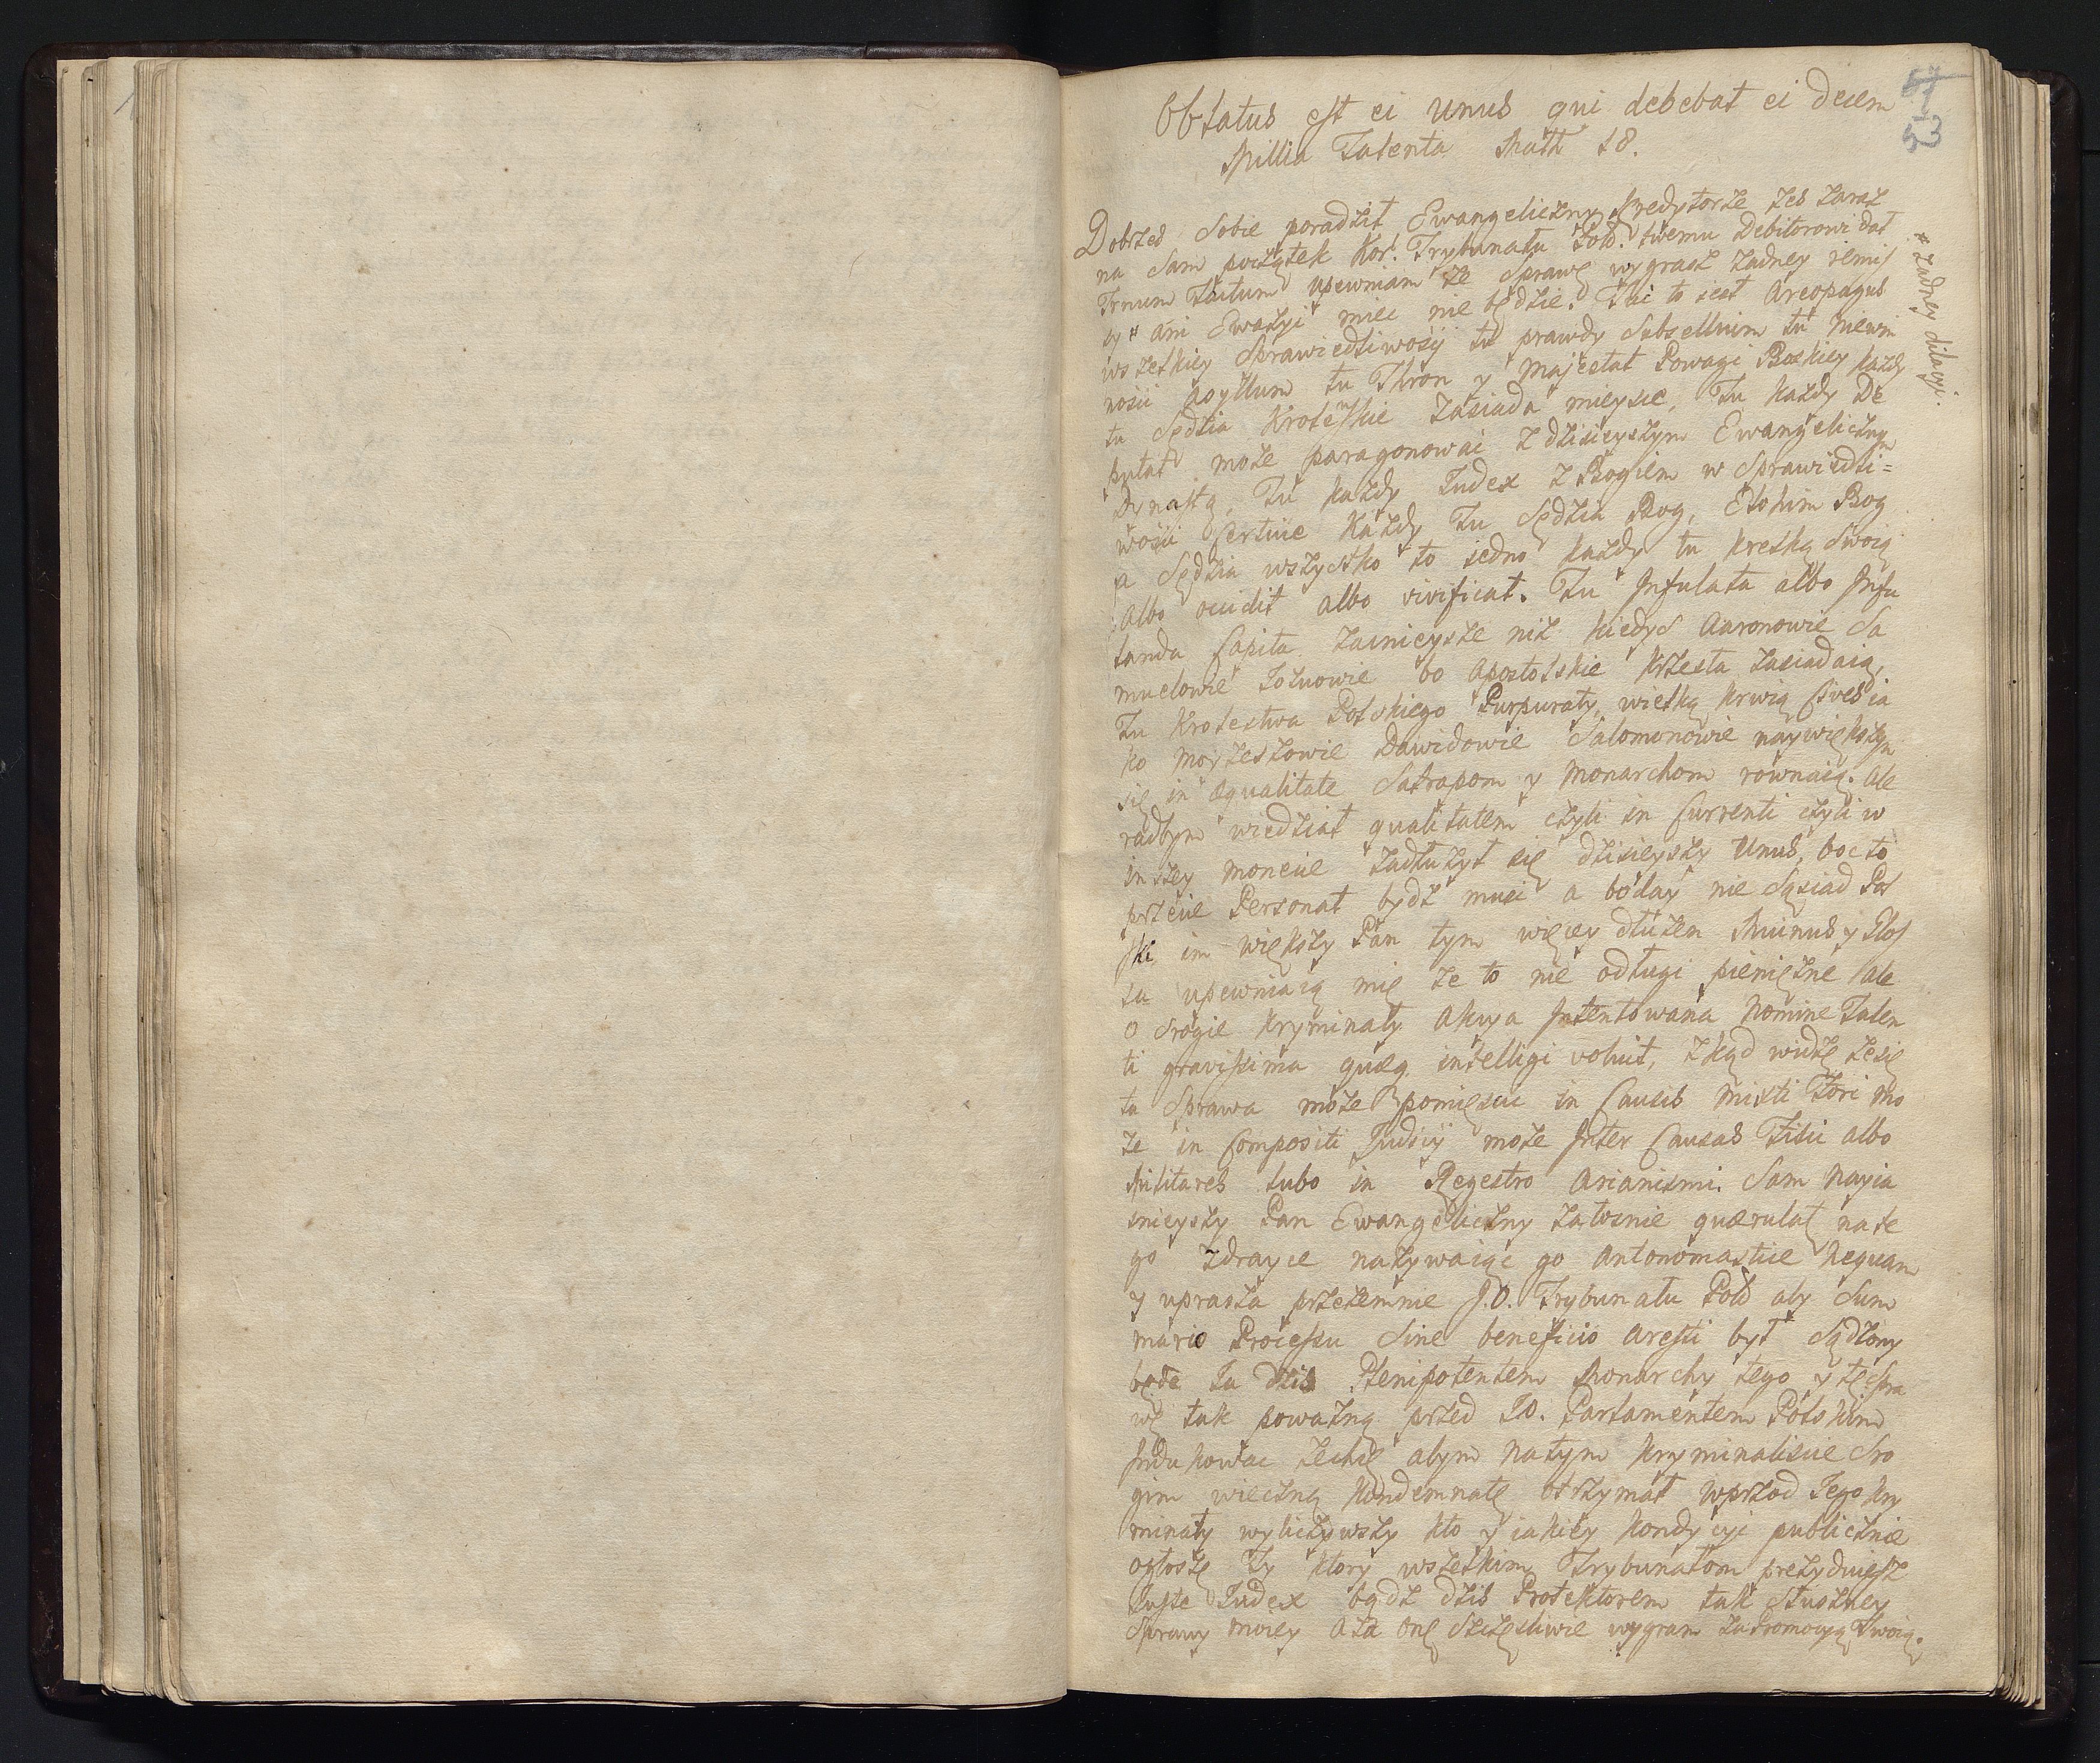 57
53
Oblatus est ei unus qui debebat ei decem
Millia Talenta Math 18.
Dobrześ sobie poradził Ewangeliczny Kredytorze żeś zaraz
na sam początek Kor: Trybunału Pols: twemu Debitorowi dał
Trnum Tactum upewniam że sprawę wygrasz żadney remis
sy # ani Ewazyi mieć nie będzie. Tu to iest Areopagus
# żadney dilacyi.
wszelkiey sprawiedliwości tu prawdy Subsellium tu niewin
ności asyllum tu Thron y Majestat Powagi Boskiey każdy
tu Sędzia Krolewskie zasiada mieysce, Tu każdy De
putat może paragonować z dzisieyszym Ewangelicznym
Dynastą, Tu każdy Iudex z Bogiem w sprawiedli=
wości certuie każdy tu Sędzia Bog, Elohim Bog
a Sędzia wszystko to iedno każdy tu kreską swoią
albo occidit albo vivificat. Tu Infulata albo Infu
landa Capita zacnieysze niż kiedyś Aaronowie Sa
muelowie Iozuowie bo Apostolskie krzesła zasiadaią,
Tu Krolestwa Polskiego Purpuraty, wielką krwią Cives ia
ko Moyżeszowie Dawidowie Salomonowie naywiększym
się in æqualitate Satrapom y Monarchom rownaią. Ale
radbym wiedział qualitatem czyli in Currenti czyli w
inszey monecie zadłużył się dzisieyszy Unus, boć to
przecie Personat bydź musi a boday nie Sąsiad Pol
ski im większy Pan tym więcey dłużen Aluinus y Glos
sa upewniaią mię że to nie o długi pieniężne ale
o srogie kryminały Akcya Intentowana Nomine Talen
ti gravissima quæq intelligi voluit, zkąd widzę że się
ta sprawa może pomieścić in Causis mixti Fori mo
że in Compositi Iudicij może Inter Causas Fisci albo
Militares lubo in Regestro Arianismi. Sam nayia
śnieyszy Pan Ewangeliczny żałośnie quærulał na te
go zdrayce nazywaiąc go Antonomastice Nequam
y uprasza przezemnie J.O. Trybunału Pols aby Sum
mario Processu Sine beneficio Aresti był sądzony
będę tu dziś Plenipotentem Monarchy tego y tę spra
wę tak poważną przed JO. Parlamentem Polskim
Indukować zechcę abym na tym kryminaliście sro
gim wieczną kondemnatę otrzymał wprzod Iego kry
minały wyliczywszy kto y iakiey kondycyi publicznie
ogłoszę Ty ktory wszelkim Trybunałom prezyduiesz
Iuste Iudex bądź dziś Protektorem tak słuszney
sprawy moiey aża onę szczęśliwie wygram za Promocyą Twoią.